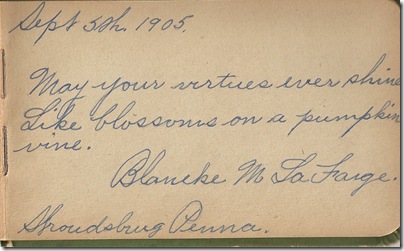 Sept 5th, 1905.
May your virtues ever shine
Like blossoms on a pumpkin
vine.
Blancke M La Farge.
Shroudsbrug Penna.